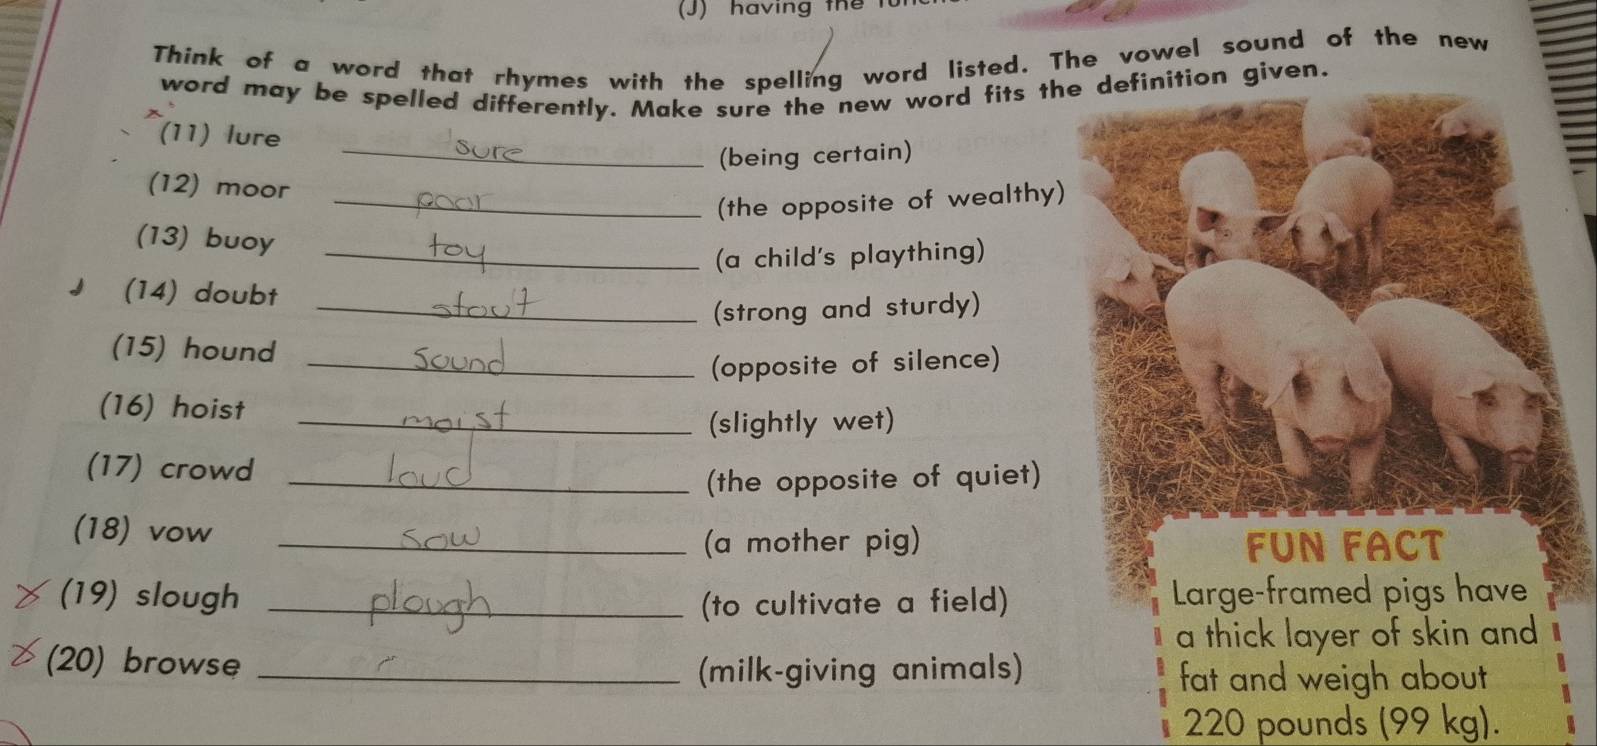 (J) having the
Think of a word that rhymes with the spelling word listed. The vowel sound of the new
word may be spelled differently. Make sure the new word fits the definition given.
(11) lure sure (being certain)
(12) moor poor (the opposite of wealthy)
(13) buoy toy (a child's plaything)
(14) doubt stout (strong and sturdy)
(15) hound sound (opposite of silence)
(16) hoist moist (slightly wet)
(17) crowd loud (the opposite of quiet)
(18) vow sow (a mother pig)
(19) slough plough (to cultivate a field)
(20) browse (milk-giving animals)
FUN FACT
Large-framed pigs have
a thick layer of skin and
fat and weigh about
220 pounds (99 kg).